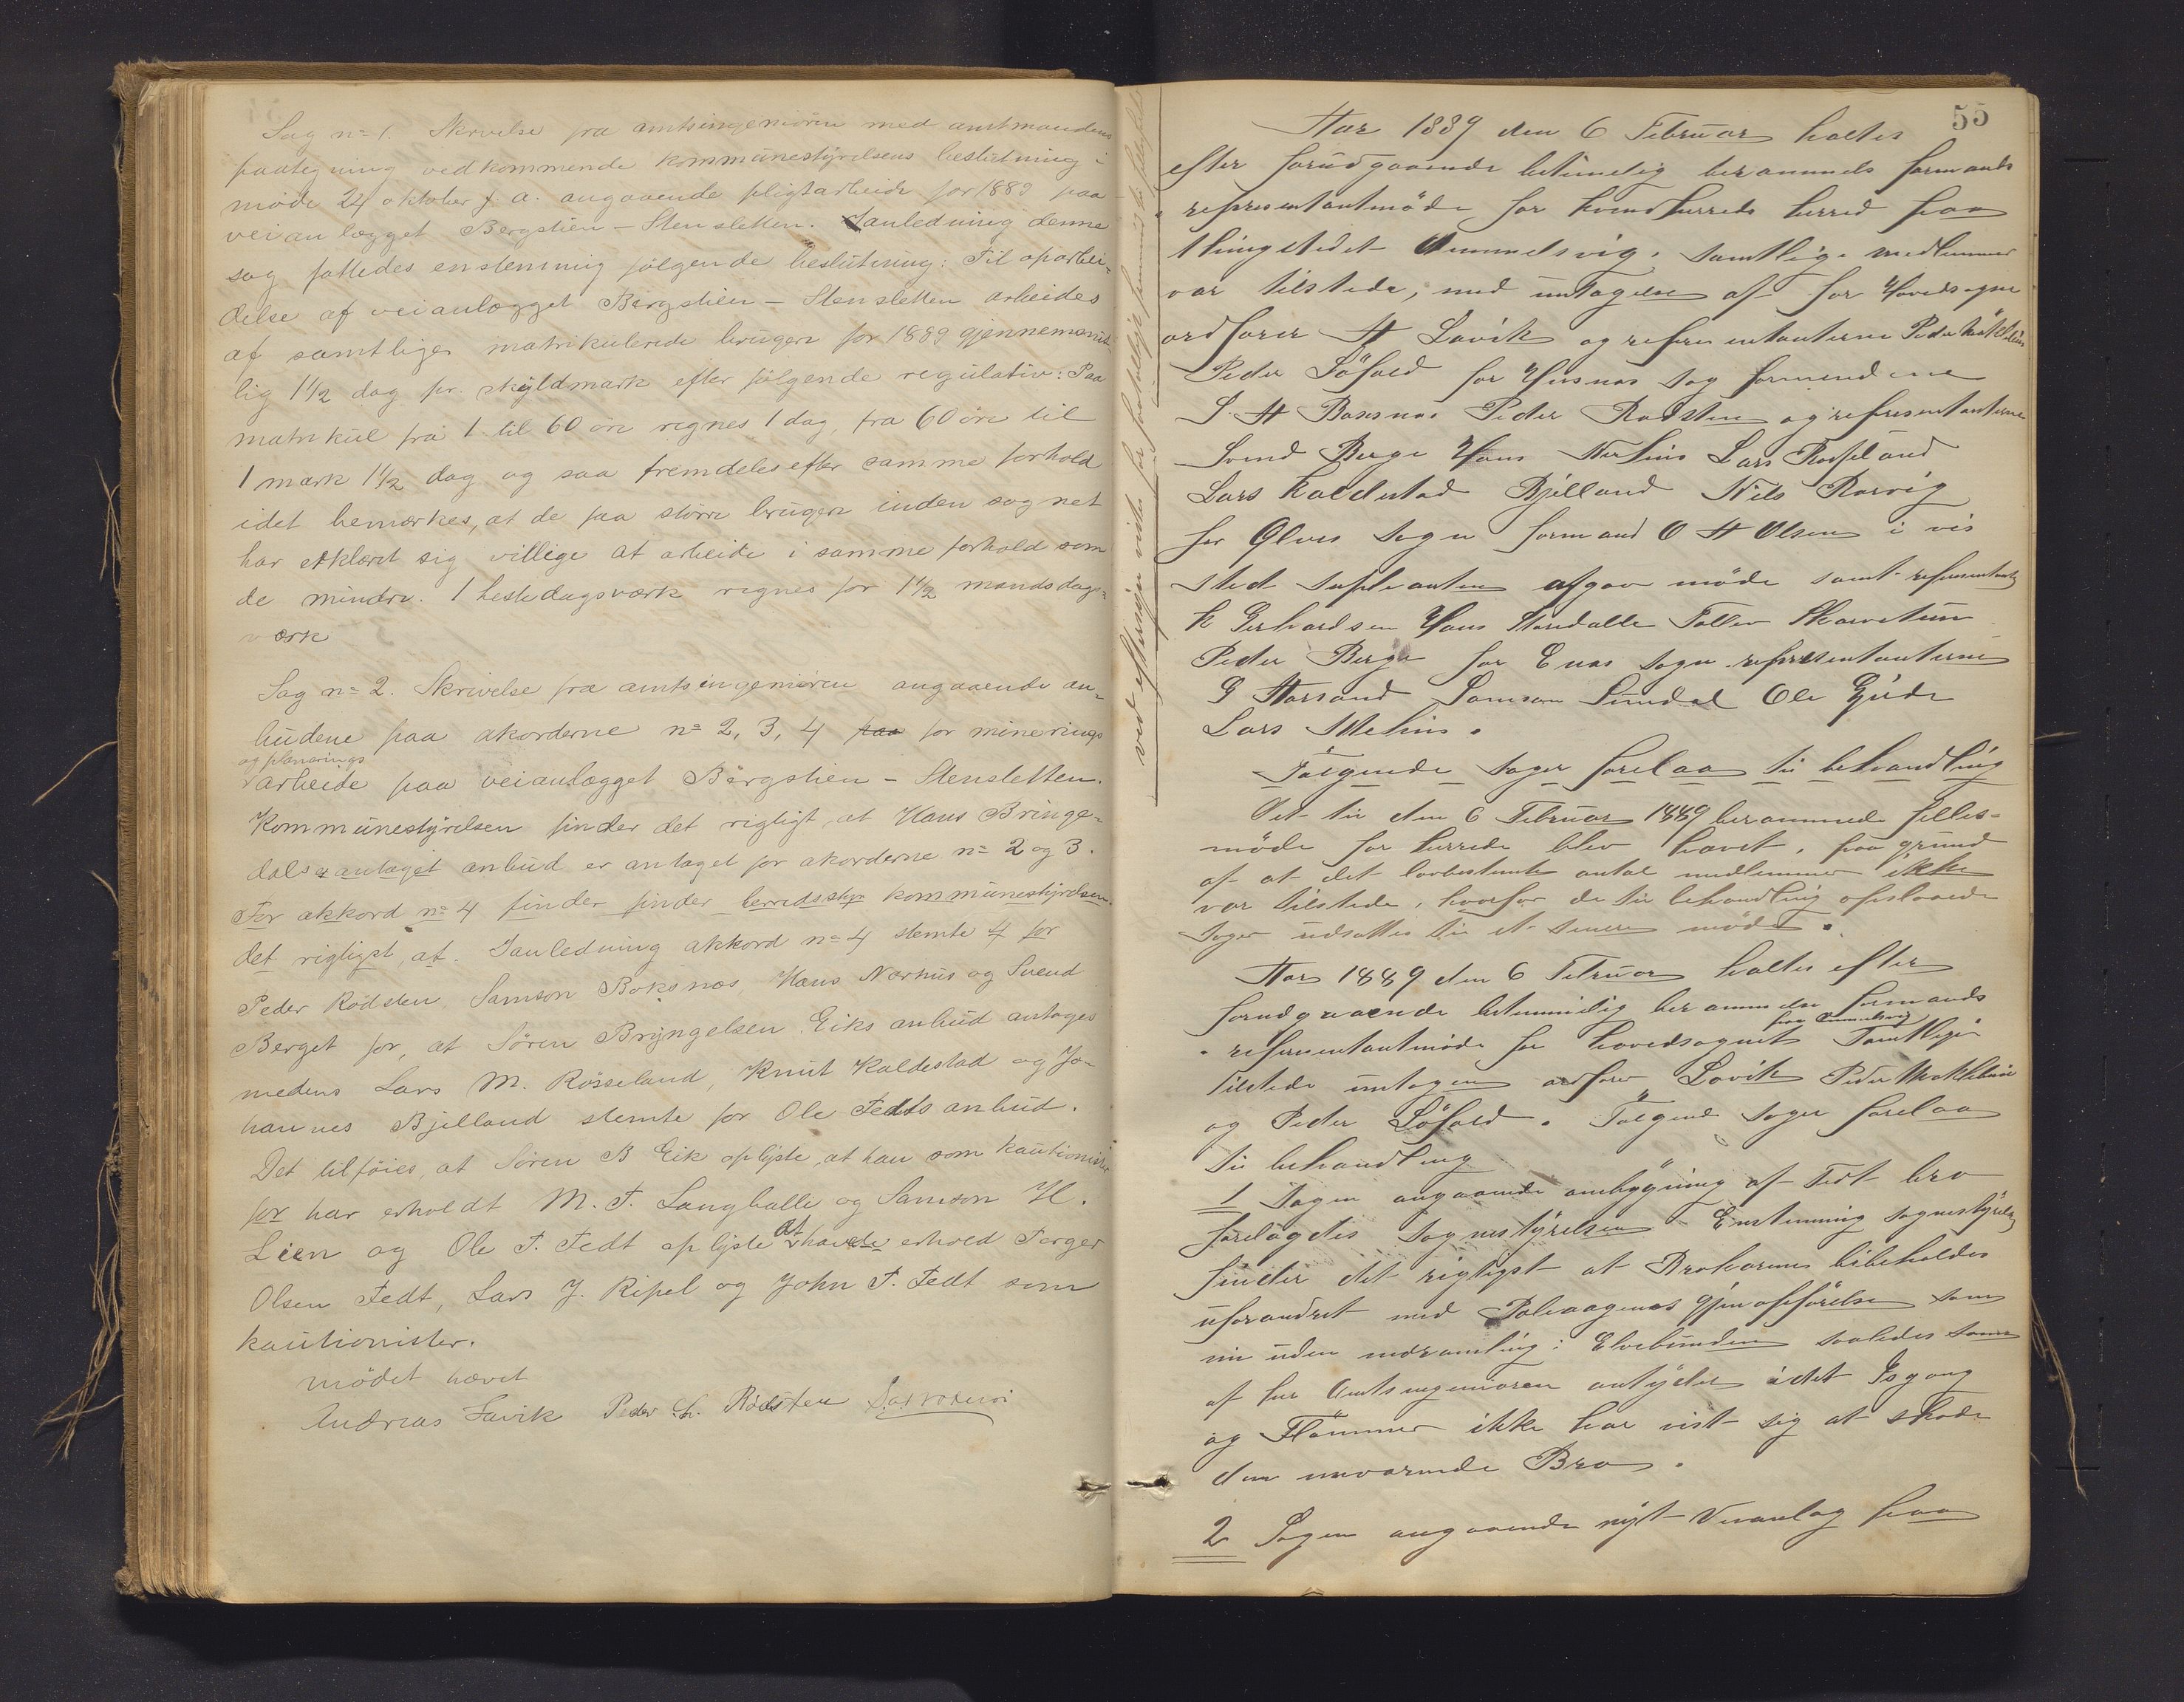 Sag no 1. Skrivelse fra amtsingeniøren med amtmandens
paategning vedkommende kommunestyrelsens beslutning i
møde 24 oktober f. a. angaaende pligtarbeide for 1889 paa
veianlægget Bergstien - Stensletten. I anledning denne
sag fattedes enstemmig følgende beslutning: Til oparbei-
delse af veianlægget Bergstien - Stensletten arbeides
af samtlige matrikulerede brugere for 1889 gjennemsnit-
lig 1½ dag pr. skyldmark efter følgende regulativ: Paa
matrikul fra 1 til 60 øre regnes 1 dag, fra 60 øre til
1 mark 1½ dag og saa fremdeles efter samme forhold
idet bemærkes, at de paa større brugere inden sognet
har erklæret sig villige at arbeide i samme forhold som
de mindre. 1 hestedagsværk regnes for 1½ mandsdags-
værk
Sag no 2. Skrivelse fra amtsingeniøren angaaende an-
budene paa akorderne no 2, 3, 4 paa for minerings
og planerings
arbeide paa veianlægget Bergstien - Stensletten.
Kommunestyrelsen finder det rigtigt, at Hans Bringe-
dals er antaget anbud er antaget for akorderne no 2 og 3.
For akkord no 4 finder finder herredssty kommunestyrelsen
det rigtigst, at. I anledning akkord no 4 stemte 4 for
Peder Rødsten, Samson Boksnæs, Hans Nærhus og Svend
Berget for, at Søren Bryngelsen Eiks anbud antages
medens Lars M. Røsseland, Knut Kaldestad og Jo-
hannes Bjelland stemte for Ole Tedts anbud.
Det tilføies, at Søren B Eik oplyste, at han som kautionister
for har erholdt M. T. Langballe og Samson H.
Lien og Ole T. Tedt oplyste at havde erhold Torger
Olsen Tedt, Lars J. Ripel og John T. Tedt som
kautionister.
mødet hævet
Andreas Lavik Peder L. Rødsten
55
Aar 1889 den 6 Februar holtes
efter forudgaaende betimelig berammels formands
representantmøde for Kvindherreds herred paa
thingstedet Ommelsvig. samtlige medlemmer
var tilstede, med untagelse af for Hovedsogne
ordfører A Lavik og representanterne Peder
Peder Løfald for Husnæs Sog formændene
S A Boxsnæs Peder Rødsten og representanterne
Svend Berge Hans Nerhus Lars Røseland
Lars Kaldestad Bjelland Nils
for Ølves Sogn formand O A Olsen i vis
sted supleanten afgav møde samt representant
K Gerhardsen Hans Tollev
Peder Berge for Enæs Sogn representanterne
G Samson Sundal Ole Gjude
Lars Mehus.
Følgende Sager forelaa til behandling
Det til den 6 Februar 1889 berammede felles-
møde for herrede blev hævet, paa grund
af at det lovbestemte antal medlemmer ikke
var tilstede, hvorfor de til behandling opslaaede
Sager udsattes til et senere møde.
Aar 1889 den 6 Februar holtes efter
forudgaaende betimmelig berammelse formands
paa Ommelsvig
representantmøde for hovedsognet Samtlige
tilstede untagen ordfører Lavik Peder
og Peder Løfald. Følgend Sager forelaa
til behandling
1 Sagen angaaende ombygning af Tedt bro
forelagdes Sognestyrelsen - Enstemmig sognestyrelse
finder det rigtigst at Brokarene bibeholdes
uforandret med gjenopførelse som
nu uden nedramling i Elvebunden saaledes som
af hr Amtsingeniøren antydet idet Isgang
og Flommer ikke har vist sig at skade
den nuværende Bro.
2 Sagen angaaende nyt Veianlæg paa